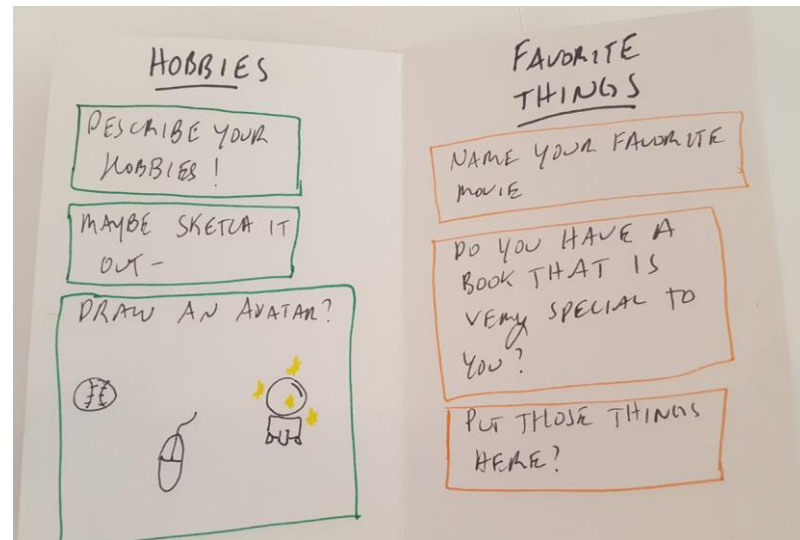 HOBBIES
DESCRIBE YOUR
HOBBIES!
MAYBE SKETCH IT
OUT-
DRAW AN AVATAR?
FAVORITE
THINGS
NAME YOUR FAVORITE
MOVIE
DO YOU HAVE A
BOOK THAT IS
VERY SPECIAL TO
YOU?
PUT THOSE THINGS
HERE?